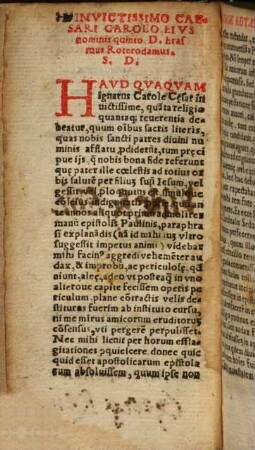 INVICTISSIMO CAE
SARI CAROLO, EIVS
nominis quinto. D. Eras
mus Roterodamus.
S. D.
HAVD QVAQVAM
ignarus Carole Cesar in
uictissime, quāta religio
quantaq; reuerentia de
beatur, quum oībus sacris literis,
quas nobis sancti patres diuini nu
minis afflatu ꝓdiderūt, tum preci
pue ijs, q̄ nobis bona fide referunt
que pater ille cœlestis ad totius or
bis salutē per filiuȝ suū Iesum,
gesserit
annos aliquot
epistolis Paulinis, paraphra
si explanādis (id ad mihi
suggessit impetus animi) videbar
mihi facinꝰ aggredi vehemēter au
dax, & improbū, ac periculose, qd
aiunt, alee, adeo vt posteaq̄ in vno
alteroue capite fecissem operis pe
riculum, plane cōtractis velis de
stiturus fuerim ab instituto cursu,
ni me mirus amicorum eruditoruȝ
cōsensus, vti pergerē perpulisset.
Nec mihi licuit per horum effla
gitationes ꝯquiescere, donec quic
quid esset apostolicarum epistolaꝝ
cum absoluissem, quum ipse non